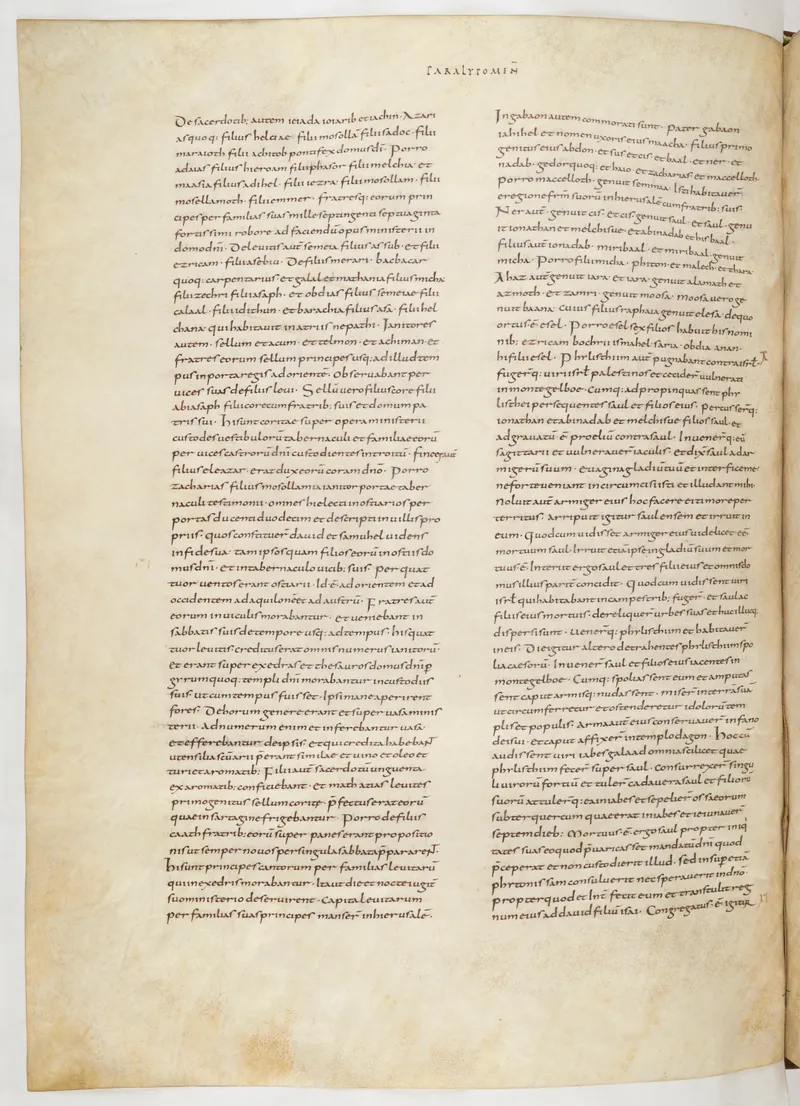 PARALYPOMEÑ
De sacerdotib; autem ieiada ioiarib et iachin · Azari
as quoq; filius helciae · filii mosollā filii sadoc · filii
maraioth filii achitob pontifex domus dī · Porro
adaias filius hieroam filii phasor filii melchia · et
maasia filius adihel · filii iezra · filii mosollam · filii
mosollamoth · filii emmer · fratresq; eorum prin
cipes per familias suas mille septingenti septuaginta
fortissimi robore ad faciendū opus ministerii in
domo dn̄i · De leuitis aut̄ semeia filius assub · et filii
ezricam · filii asebiu · De filiis merari · bacbacar
quoq; carpentarius et galal et mathania filius micha
filii zechri filii asaph · et obdias filius semeiae · filii
calaal · filii idithun · et barachia filius asa · filii hel
chana · qui habitauit in atriis nepathi · Ianitores
autem · sellum et acum · et telmon · et achiman · et
fratres eorum sellum princeps usq; ad illud tem
pus in porta regis ad orientē · Obseruabant per
uices suas de filiis leui · Sellū uero filius core filii
abiasaph filii core cum fratrib; suis et domum pa
tris sui · Hi sunt coritae super opera ministerii
custodes uestibulorū tabernaculi et familiae eorū
per uices castrorū dn̄i custodientes introitū · finees aut̄
filius eleazar · erat dux eorū coram dn̄o · Porro
zacharias filius mosollamia ianitor portae taber
naculi testimonii · omnes hi electi in ostiarios per
portas ducenti duodecim et descripti in uillis pro
priis · quos constituer̄ dauid et samuhel uidens
in fide sua · tam ipsos quam filios eorū in ostiis do
mus dn̄i · et in tabernaculo uicib; suis · per quat
tuor uentos erant ostiarii · Id ē · ad orientem et ad
occidentem ad aquilonē et ad austrū · Fratres aut̄
eorum in uiculis morabantur · et ueniebant in
sabbatis suis de tempore usq; ad tempus · his quat
tuor leuitis creditus erat omnis numerus ianitorū ·
et erant super exedras et thesauros domus dn̄i p
gyrumquoq; templi dn̄i morabantur in custodiis
suis · ut cum tempus fuisset · Ipsi mane aperirent
fores · De horum genere erant et super uasa minis
terii · Ad numerum enim et inferebantur uasa ·
et efferebantur de ipsis · et qui credita habebant
utensilia sc̄uarii p̄erant similae et uino et oleo et
turi et aromatib; Filii aut̄ sacerdotū unguenta
ex aromatib; conficiebant · et mathatias leuites
primogenitus sellum coritę · p̄fectus erat eorū
quae in sartagine frigebantur · Porro de filiis
caath fratrib; eorū super panes erant propositio
nis ut semper nouos per singula sabbata p̄pararent ·
Hi sunt principes cantorum per familias leuitarū
qui in exedris morabantur · Ita ut die et nocte iugit̄
suo ministerio deseruirent · Capita leuitarum
per familias suas principes manser̄ in hierusalē ·
In gabaon autem commorati sunt · pater gabaon
iahihel et nomen uxoris eius maacha · filius primo
genitus eius abdon · et sur et cis et baal · et ner · et
nadab · gedor quoq; et haio · et zacharias et maccelloth ·
porro maccelloth · genuit semmua · Isti habitauer̄
e regione fr̄m suorū in hierusalē cum fratrib; suis ·
Ner aut̄ · genuit cis · et cis genuit saul · et saul · genu
it ionathan et melchisue · et abinadab et hisbaal ·
filius aut̄ ionadab · miribaal · et miribaal · genuit
micha · Porro filii micha · phiton · et malech · et thara ·
Ahaz aut̄ genuit iara · et iara · genuit alamath et
azmoth · et zamri · genuit moosa · moosa uero ge
nuit baana · Cuius filius raphaia genuit elesa · de quo
ortus ē esel · Porro esel sex filios habuit his nomi
nib; ezricam bochru ismahel · saria · obdia · anan ·
hi filii esel · Phılischiim aut̄ pugnabant contra isrł ·
fuger̄q; uiri isrł palestinos et cecider̄ uulnerati
in monte gelboe · Cumq; adpropinquassent phı
lischei persequentes saul et filios eius · percusser̄q;
ionathan et abinadab et melchisue filios saul · et
adgrauatū ē proeliū contra saul · Inuener̄q; eū
sagittarii et uulnerauer̄ iaculis · et dix̄ saul ad ar
migerū suum · euagina gladiū tuū et interfice me ·
ne forte ueniant incircumcisi isti et illudant mihi ·
Noluit aut̄ armiger eius hoc facere · timore per
territus · arripuit igitur saul ensem et irruit in
eum · Quod cum uidisset armiger eius uidelicet eē
mortuum saul · Irruit etiā ipse in gladiū suum et mor
tuus ē · Interiit ergo saul et tres filii eius et omnis do
mus illius parit̄ concidit · Quod cum uidissent uiri
isrł qui habitabant in campestrib; fuger̄ · et saul ac
filiis eius mortuis · dereliquer̄ urbes suas et huc illucq;
dispersi sunt · uener̄q; phılischiim et habitauer̄
in eis · Die igitur altero detrahentes phılischiim spo
lia caesorū · Inuener̄ saul et filios eius iacentes in
monte gelboe · Cumq; spoliassent eum et amputas
sent caput armisq; nudassent · miser̄ in terrā suā
ut circumferretur et ostenderetur idolorū tem
plis et populis · arma aut̄ eius consecrauer̄ in fano
dei sui · et caput affixer̄ in templo dagon · Hoc cū
audissent uiri iabes galaad omnia scilicet quae
phılischiim fecer̄ super saul · Consurrexer̄ singu
li uirorū fortiū et tuler̄ cadauera saul et filiorū
suorū attuler̄q; ea in iabes et sepelier̄ ossa eorum
subter quercum quae erat in iabes et ieiunauer̄
septem dieb; Mortuus ē ergo saul propter iniq
tates suas eo quod p̄uaricasset mandatū dn̄i quod
p̄ceperat et non custodierit illud · sed insup̄ etiā
phitonissam consuluerit nec sperauerit in dn̄o ·
propter quod et Int̄fecit eum et transtulit reg
num eius ad dauid filiū isai · Congregatus ē igitur